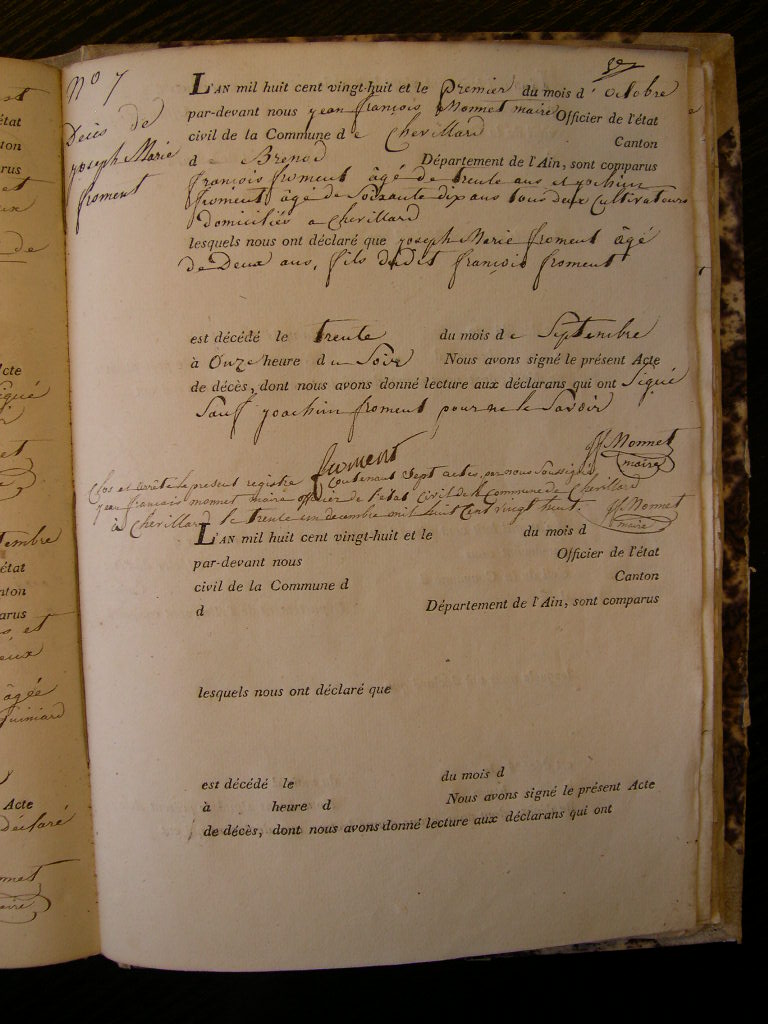 No 7
Décès de
joseph Marie
froment
L'AN mil huit cent vingt-huit et le Premier du mois d'octobre
par-devant nous jean françois Monnet maire Officier de l'état
civil de la Commune de Chevillard
Canton
d Brenod Département de l'Ain, sont comparus
françois froment âgé de trente ans et joachim
froment âgé de Soixante dix ans tous deux Cultivateurs
domiciliés a Chevillard
lesquels nous ont déclaré que joseph Marie froment âgé
de Deux ans, fils du dit françois froment
est décédé le trente du mois de Septembre
à Onze heure du Soir Nous avons signé le présent Acte
de décès, dont nous avons donné lecture aux déclarans qui ont Signé
Sauf joachim froment pour ne le Savoir
froment
jff Monnet
maire
Clos et arrété le present registre Contenant Sept actes, par nous Soussigné
jean françois monnet maire officier de l'etat Civil de la Commune de Chevillard
à Chevillard le trente un decembre mil huit Cent vingt huit.
jff Monnet
maire
L'AN mil huit cent vingt-huit et le du mois d
par-devant nous Officier de l'état
civil de la Commune d Canton
d Département de l'Ain, sont comparus
lesquels nous ont déclaré que
est décédé le du mois d
à heure d Nous avons signé le présent Acte
de décès, dont nous avons donné lecture aux déclarans qui ont